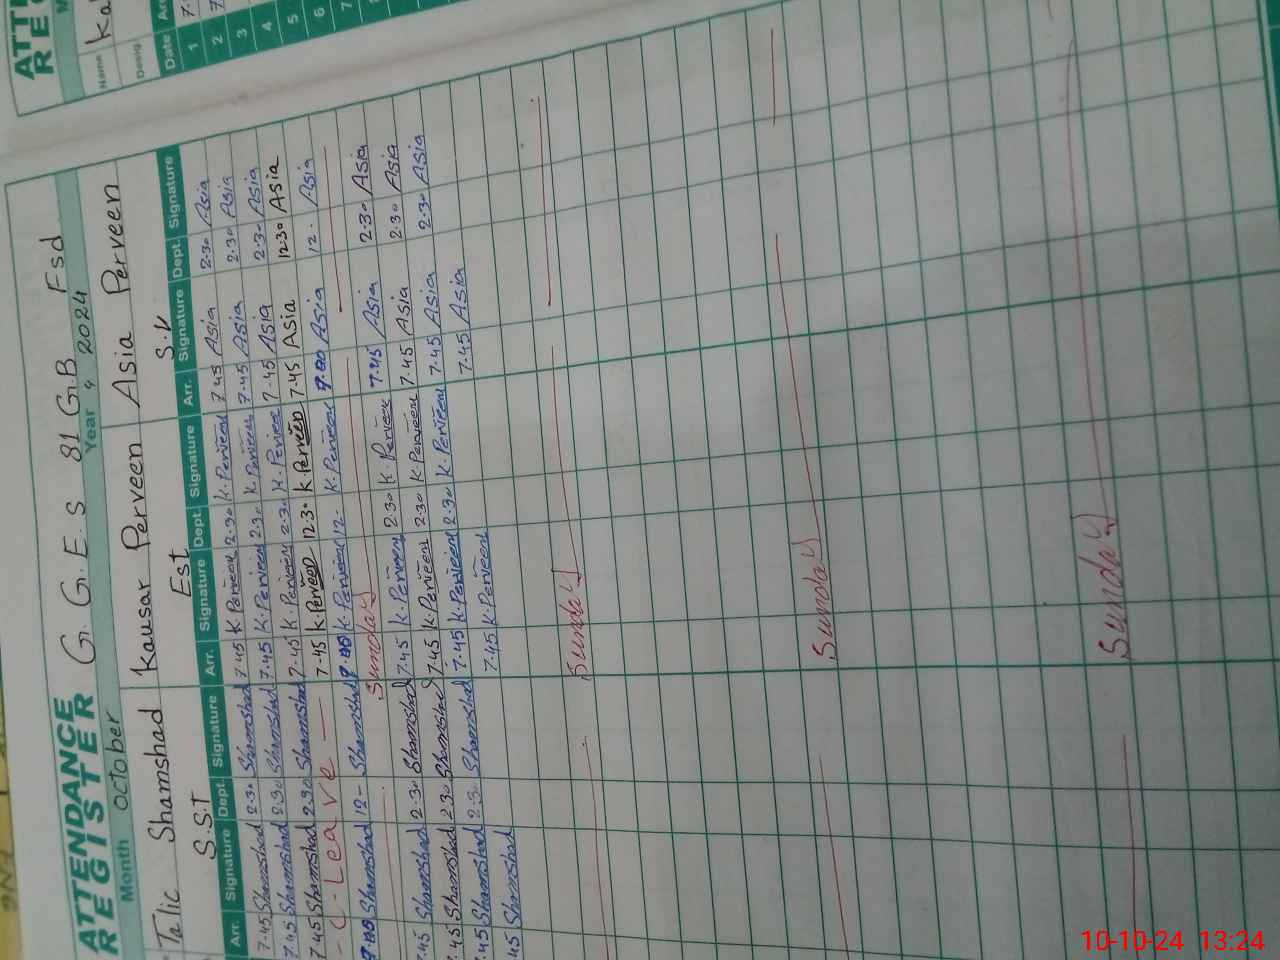 ATTENDANCE REGISTER G. G. E. S 81 G.B Fsd
Month October Year 2024
Talic Shamshad Kausar Perveen Asia Perveen
S.S.T Est S.V
Arr. Signature Dept. Signature Arr. Signature Dept. Signature Arr. Signature Dept. Signature
7.45 Shamshad 2.30 Shamshad 7.45 K Perveen 2.30 K. Perveen 7.45 Asia 2.30 Asia
7.45 Shamshad 2.30 Shamshad 7.45 K. Perveen 2.30 K Perveen 7.45 Asia 2.30 Asia
7.45 Shamshad 2.30 Shamshad 7.45 K. Perveen 2.30 K. Perveen 7.45 Asia 2.30 Asia
C. Leave 7.45 K. Perveen 12.30 K. Perveen 7.45 Asia 12.30 Asia
Shamshad 12 - Shamshad K. Perveen 12. K. Perveen Asia 12. Asia
Sunday
7.45 Shamshad 2.30 Shamshad 7.45 K. Perveen 2.30 K. Perveen 7.45 Asia 2.30 Asia
.45 Shamshad 2.30 Shamshad 7.45 K. Perveen 2.30 K. Perveen 7.45 Asia 2.30 Asia
.45 Shamshad 2.30 Shamshad 7.45 K. Perveen 2.30 K. Perveen 7.45 Asia 2.30 Asia
45 Shamshad 7.45 K. Perveen 7.45 Asia
Sunday
Sunday
Sunday
Name
Desig.
Date
1
2
3
4
5
6
7
10-10-24 13:24